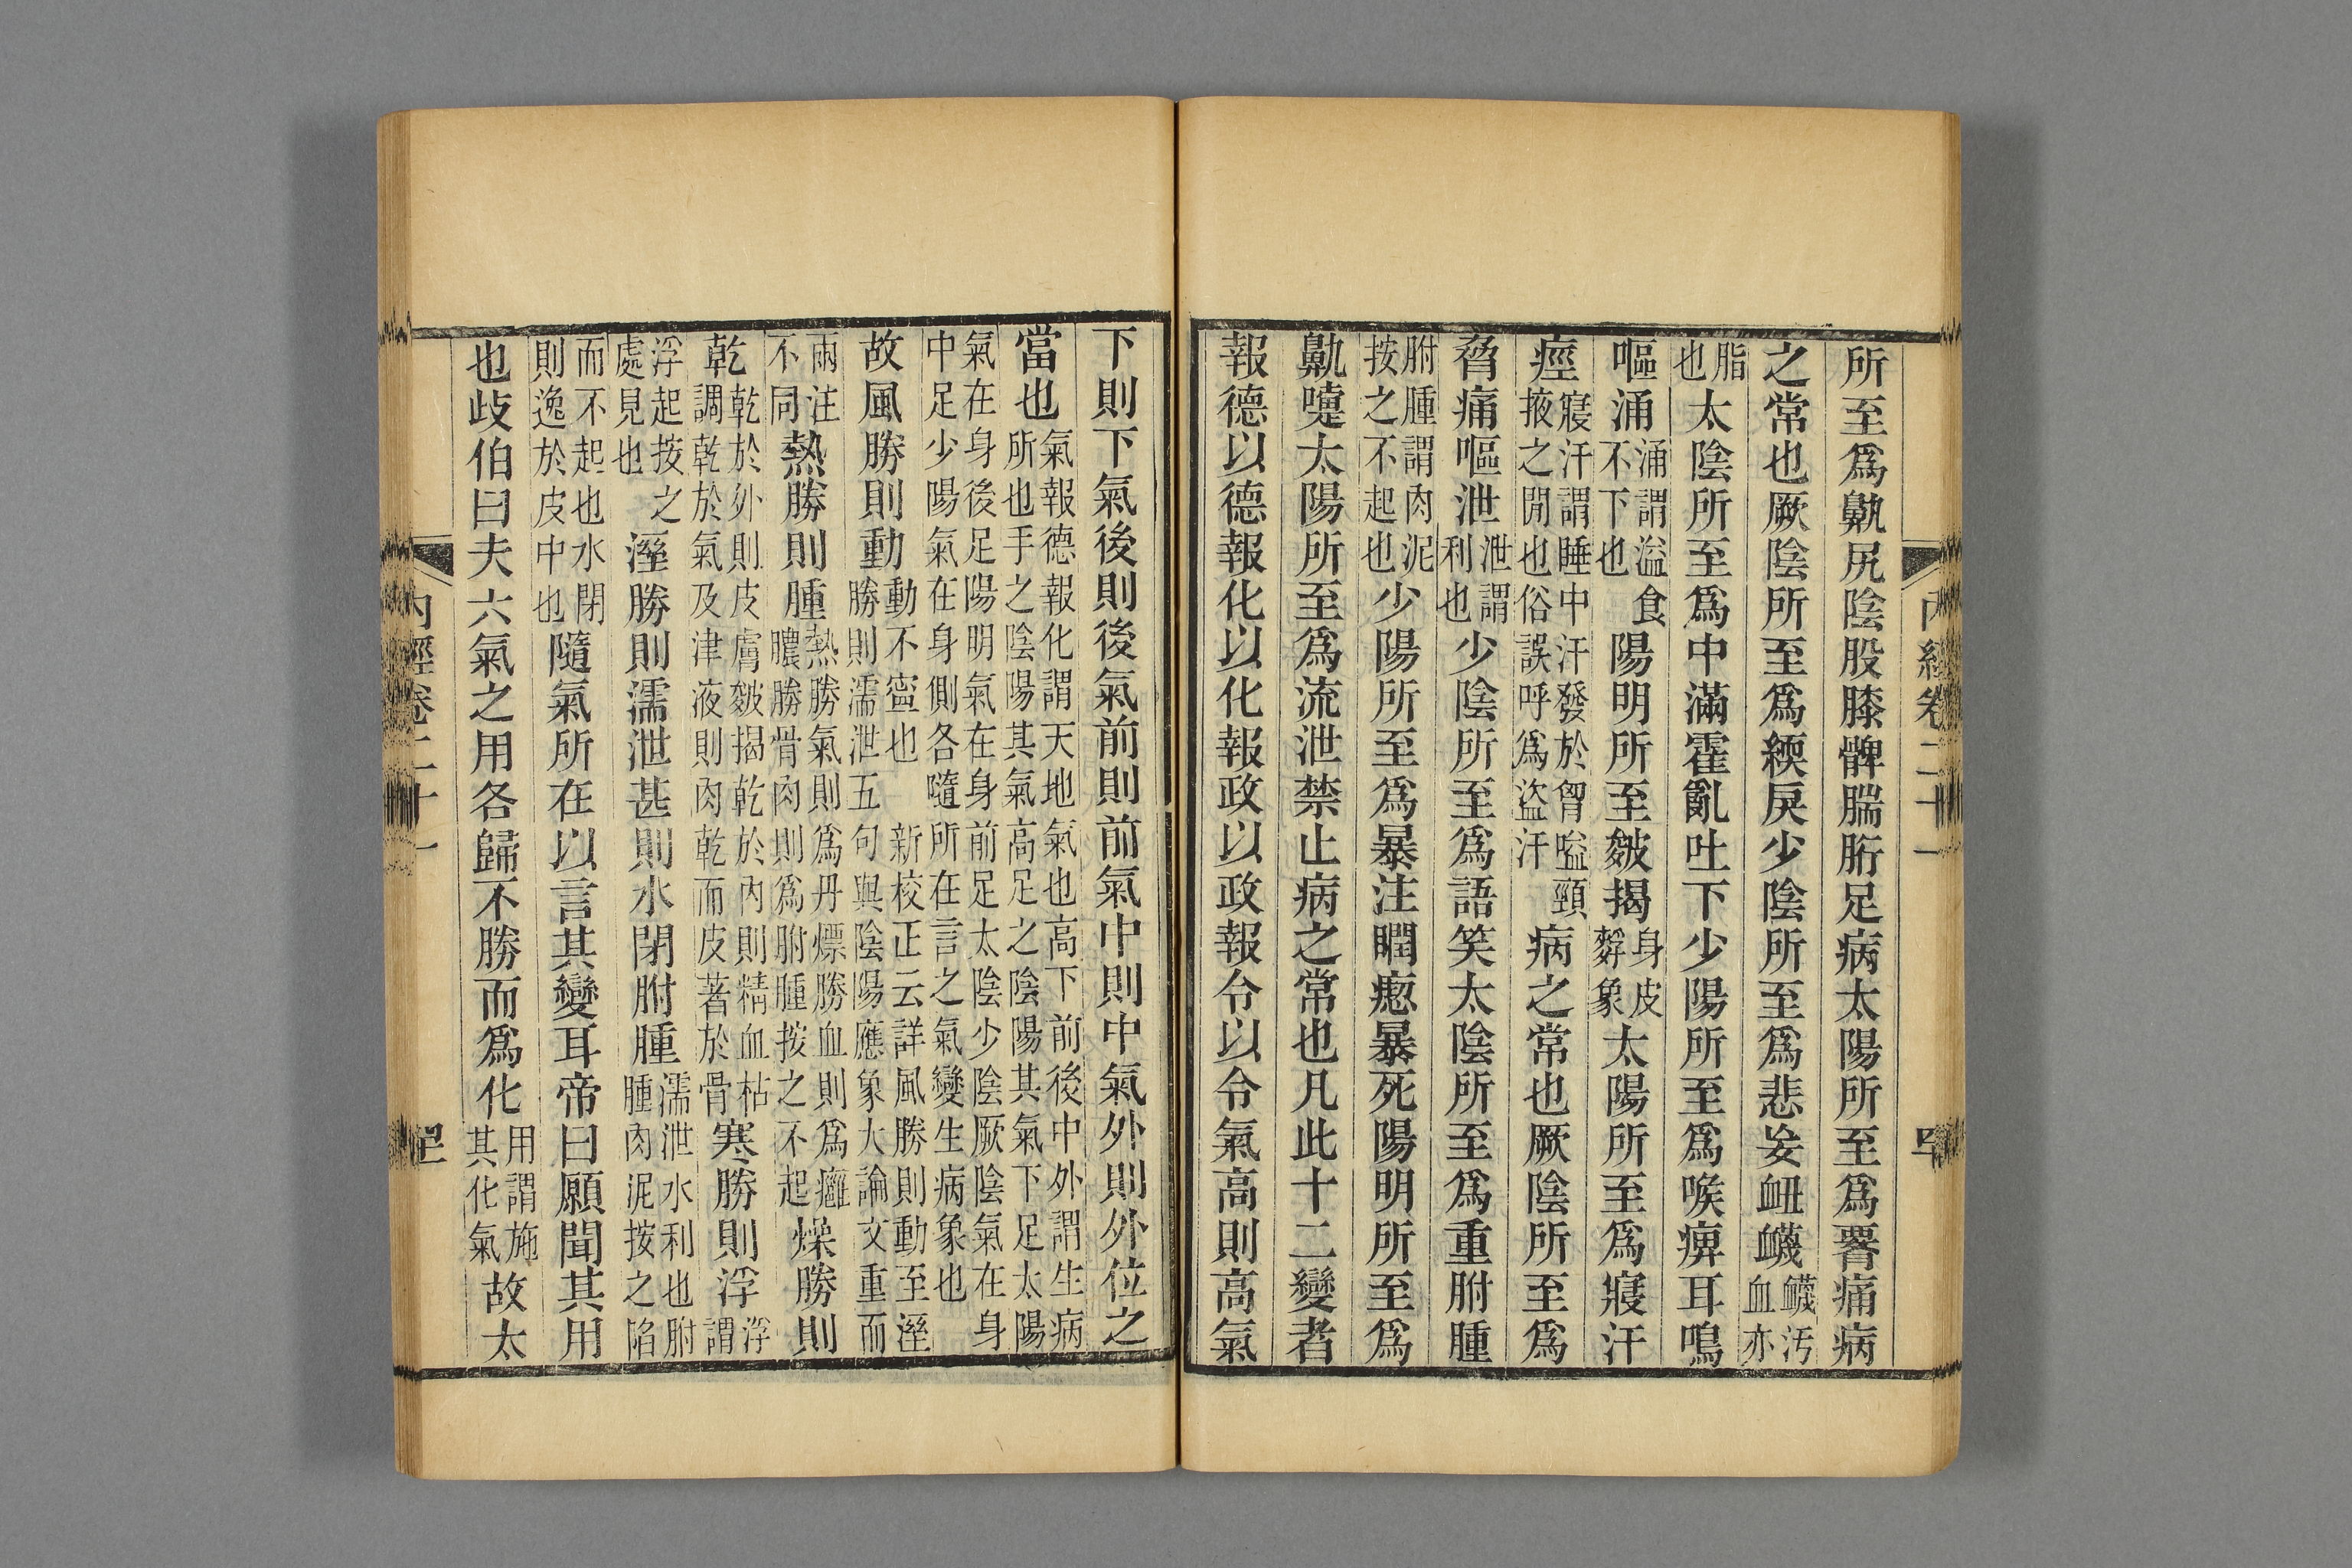 所至爲鼽尻陰股膝髀腨胻足病太陽所至爲𦞦痛病
之常也厥陰所至爲緛戾少陰所至爲悲妄衄衊衊汚血亦
脂也太陰所至爲中滿霍亂吐下少陽所至爲喉痹耳鳴
嘔涌涌謂溢食不下也陽明所至皴揭身皮麩象太陽所至爲寢汗
痙寢汗謂睡中汗發於胷嗌頸掖之閒也俗誤呼爲盜汗病之常也厥陰所至爲
脅痛嘔泄泄謂利也少陰所至爲語笑太陰所至爲重胕腫
胕腫謂肉泥按之不起也少陽所至爲暴注瞤瘛暴死陽明所至爲
鼽嚏太陽所至爲流泄禁止病之常也凡此十二變者
報德以德報化以化報政以政報令以令氣高則高氣
下則下氣後則後氣前則前氣中則中氣外則外位之
當也氣報德報化謂天地氣也高下前後中外謂生病所也手之陰陽其氣高足之陰陽其氣下足太陽
氣在身後足陽明氣在身前足太陰少陰厥陰氣在身中足少陽氣在身側各隨所在言之氣變生病象也
故風勝則動動不寍也新校正云詳風勝則動至溼勝則濡泄五句與陰陽應象大論文重而
兩注不同熱勝則腫熱勝氣則爲丹熛勝血則爲癰膿勝骨肉則爲胕腫按之不起燥勝則
乾乾於外則皮膚皴揭乾於內則精血枯調乾於氣及津液則肉乾而皮著於骨寒勝則浮浮謂
浮起按之處見也溼勝則濡泄甚則水閉胕腫濡泄水利也胕腫肉泥按之陷
而不起也水閉則逸於皮中也隨氣所在以言其變耳帝曰願聞其用
也歧伯曰夫六氣之用各歸不勝而爲化用謂施其化氣故太
內經卷二十一